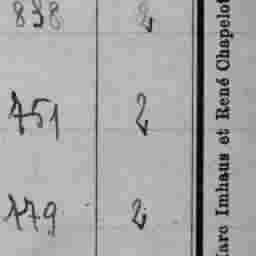 838 2
751 2
779 2
Marc Imhaus et René Chapelot